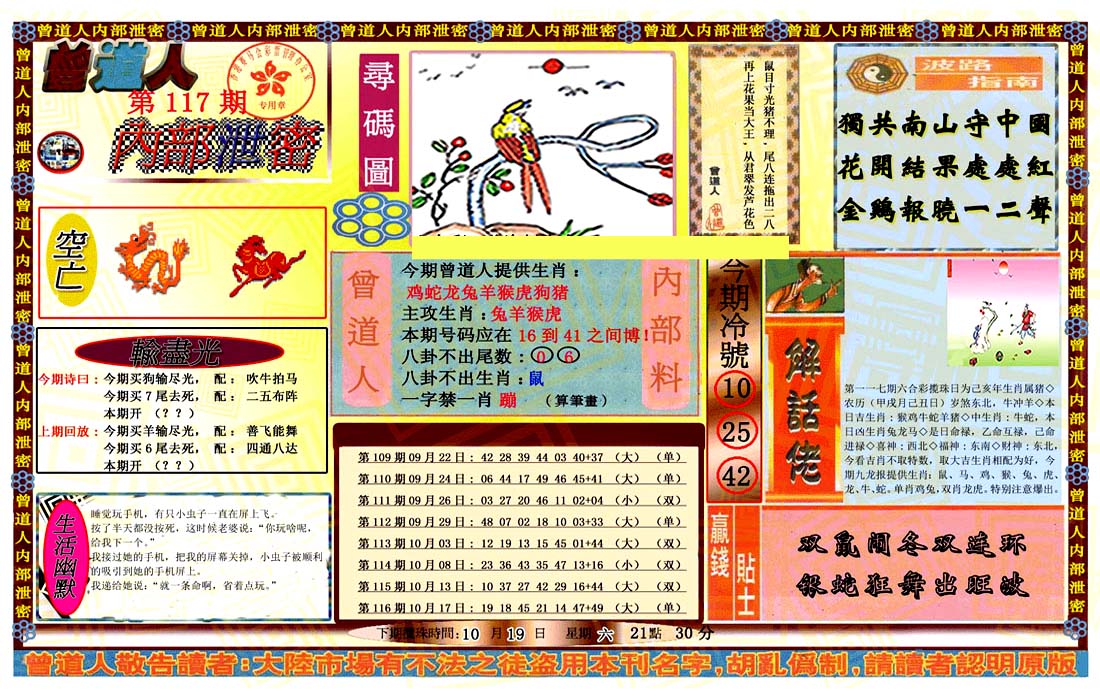 曾道人内部泄密 曾道人内部泄密 曾道人内部泄密 曾道人内部泄密 曾道人内部泄密 曾道人内部泄密 曾道人内部泄密
曾道人内部泄密
曾道人内部泄密
曾道人内部泄密
曾道人内部泄密
曾道人
第117期
内部泄密
专用章
空亡
輸盡光
今期诗曰：今期买狗输尽光， 配： 吹牛拍马
今期买7尾去死， 配： 二五布阵
本期开 （？？）
上期回放：今期买羊输尽光， 配： 善飞能舞
今期买6尾去死， 配： 四通八达
本期开 （？？）
生活幽默
睡觉玩手机，有只小虫子一直在屏上飞。
按了半天都没按死，这时候老婆说：“你玩啥呢，
给我下一个。”
我接过她的手机，把我的屏幕关掉，小虫子被顺利
的吸引到她的手机屏上。
我递给她说：“就一条命啊，省着点玩。”
尋碼圖
鼠目寸光猪不理，尾八连拖出二八
再上花果当大王，从君翠发芦花色
曾道人
曾道人
内部料
今期曾道人提供生肖：
鸡蛇龙兔羊猴虎狗猪
主攻生肖：兔羊猴虎
本期号码应在 16 到 41 之间博！
八卦不出尾数：0 6
八卦不出生肖：鼠
一字禁一肖 蹦 （算筆畫）
第109期09月22日：42 28 39 44 03 40+37 （大） （单）
第110期09月24日：06 44 17 49 46 45+41 （大） （单）
第111期09月26日：03 27 20 46 11 02+04 （小） （双）
第112期09月29日：48 07 02 18 10 03+33 （大） （单）
第113期10月03日：12 19 13 15 45 01+44 （大） （双）
第114期10月08日：23 36 43 35 47 13+16 （小） （双）
第115期10月13日：10 37 27 42 29 16+44 （大） （双）
第116期10月17日：19 18 45 21 14 47+49 （大） （单）
下期攪珠時間：10 月 19 日 星期 六 21點 30 分
波路指南
獨共南山守中國
花開結果處處紅
金鷄報曉一二聲
今期冷號
10
25
42
解話佬
第一一七期六合彩攪珠日为己亥年生肖属猪◇
农历（甲戌月己丑日）岁煞东北，牛冲羊◇本
日吉生肖：猴鸡牛蛇羊猪◇中生肖：牛蛇，本
日凶生肖兔龙马◇是日命禄，乙命互禄，己命
进禄◇喜神：西北◇福神：东南◇财神：东北，
今看吉肖不取特数，取大吉生肖相配为好，今
期九龙报提供生肖：鼠、马、鸡、猴、兔、虎、
龙、牛、蛇。单肖鸡兔，双肖龙虎。特别注意爆出。
贏錢貼士
双鼠闹冬双连环
银蛇狂舞出旺波
曾道人敬告讀者：大陸市場有不法之徒盗用本刊名字，胡亂僞制，請讀者認明原版